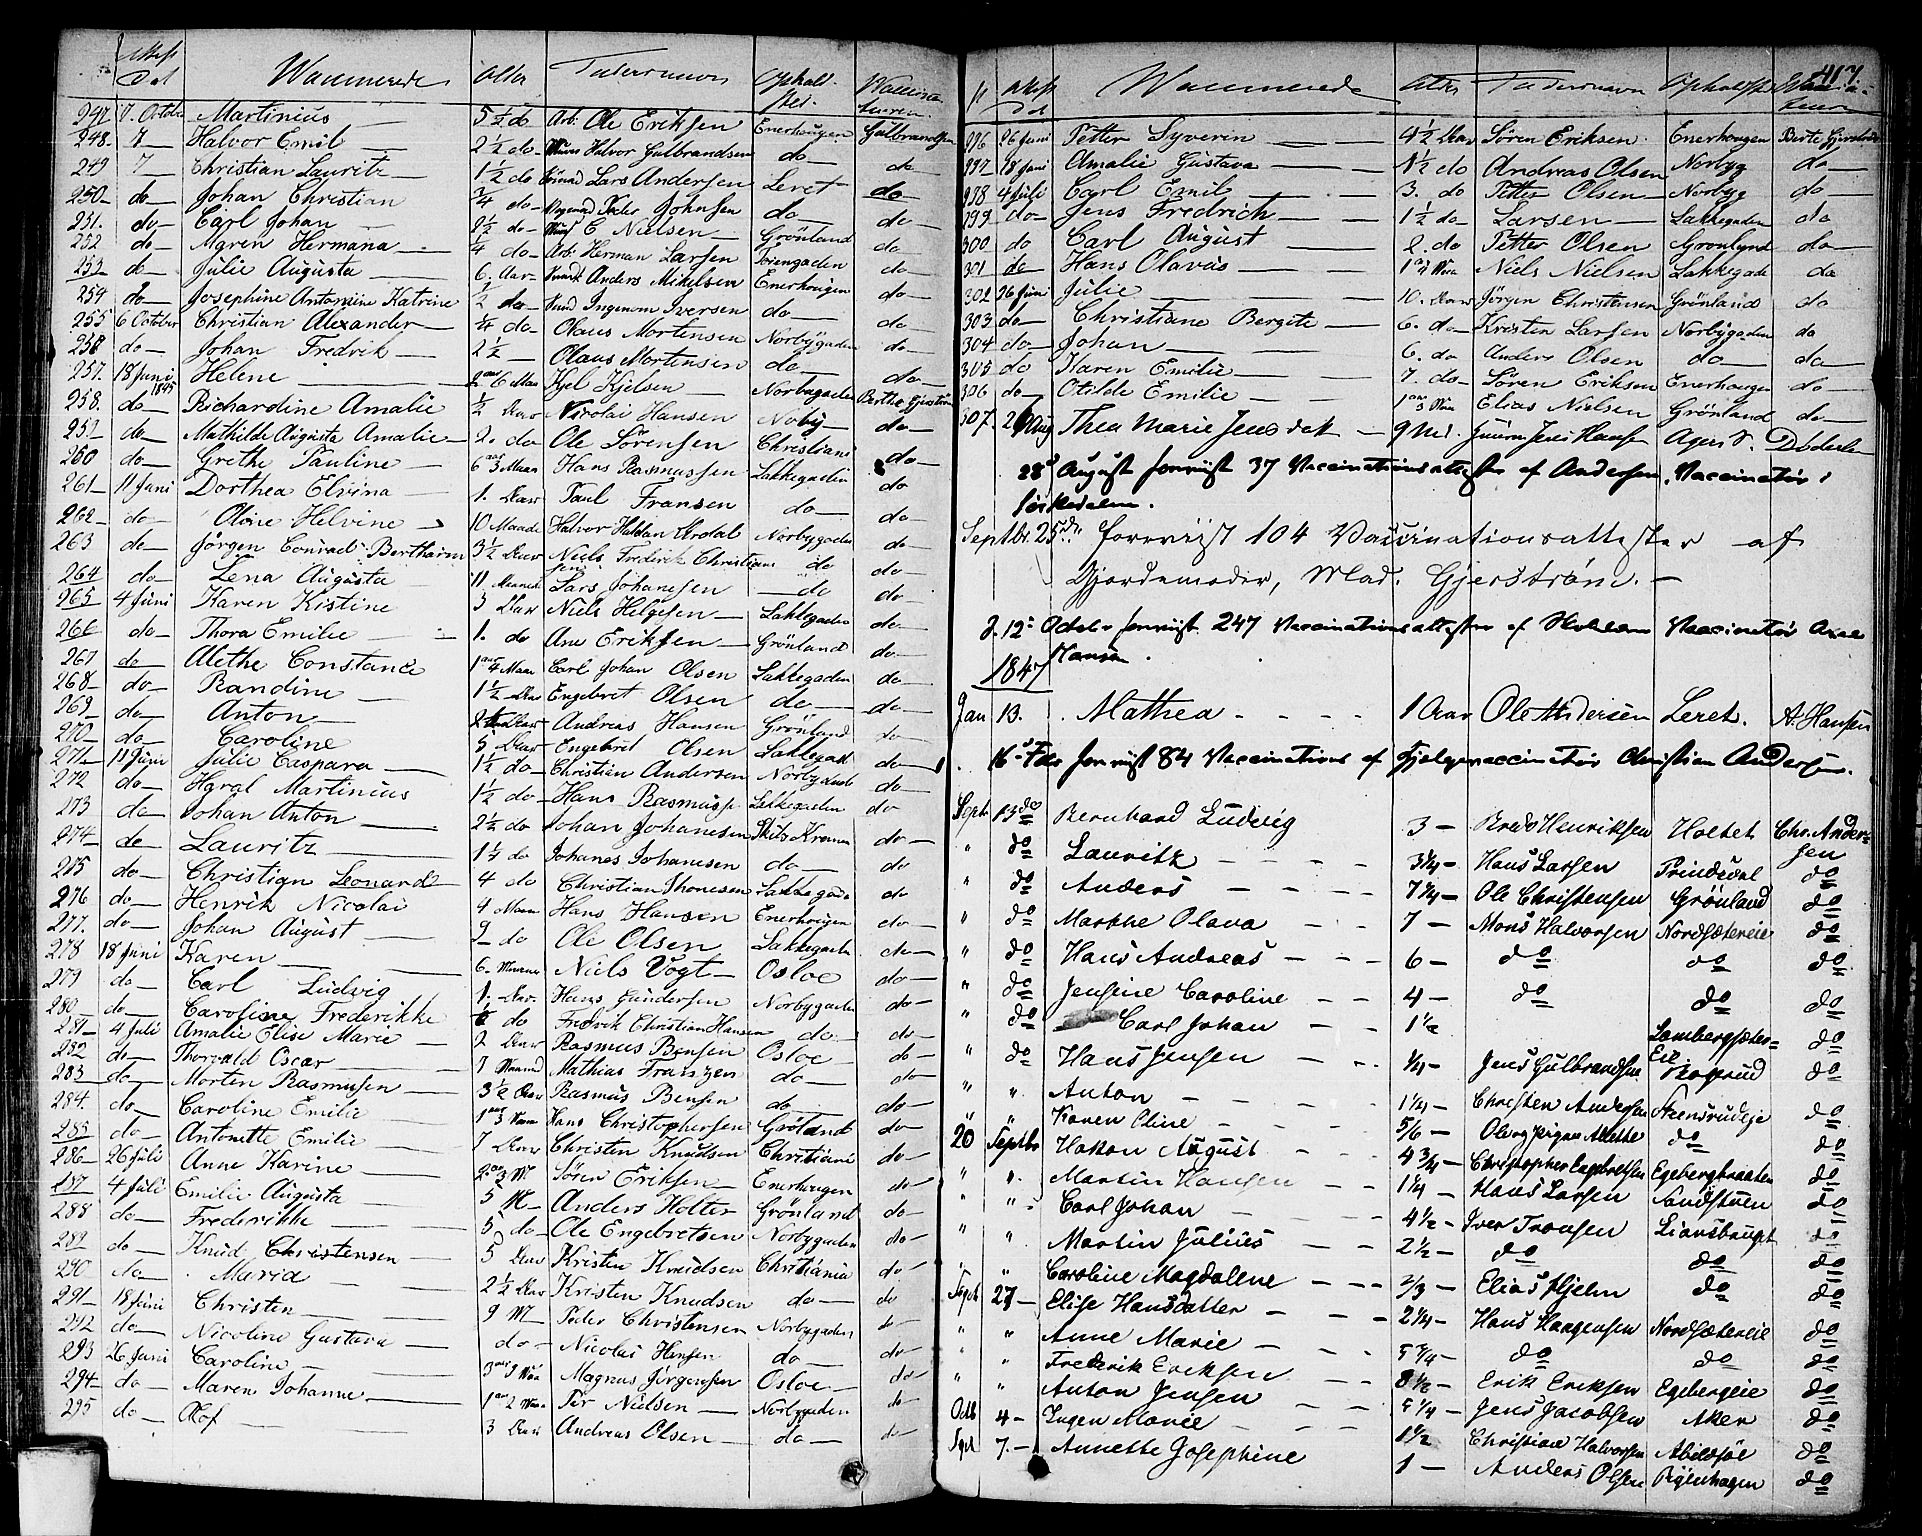 Dat Waccinerede Alder Faders navn Ophold sted
247 7. October Martinius 5½ do Arb. Ole Eriksen Enerhaugen Gulbrandsen
248. 7 Halvor Emil 2½ do Halvor Gulbrandsen do do
249 7 Christian Lauritz 1½ do Lars Andersen Leret do
250 do Johan Christian ¾ do Peder Johnsen do do
251. do Carl Johan E Nielsen Grönland do
252 do Hermana ¼ do Arb. Herman Larsen do
253 do Julie Augusta 6 Aar Anders Mikelsen Enerhougen do
254 do Josephine Antomine Katrine ½ do Ingemom Iversen do do
255 6 October Christian Alexander ¼ do Olaus Mortensen Norbygaden do
256 do Johan Fredrik 2½ Olaus Mortensen do do
257. 18 Juni 1845 Helene 6 Maan Kjel Kjelsen Norbygaden Berthe Gjerstrøm
258. do Richardine Amalie ½ Aar Nicolai Hansen Noby do
259 do Mathilde Augusta Amalie 2. do Ole Sörensen Christiani do
260 do Grethe Pauline 6 Hans Rasmussen Lakkegaden do
261 11 Juni Dorthea Elvina 1. Aar Paul Fransen do do
262 do Oline Helvine 10 Maade Halvor Norbygaden do
263 do Jörgen Conrad Berthavin 3½ Aar Niels Frederik Christiansen do do
264 do Lena Augusta 11 Maaned Lars Johansen do do
265 4 Juni Karen Kistine 3 Aar Niels Helgesen Lakkegaden do
266 do Thora Emilie 1. do Ane Eriksen Grönland do
267 do Alethe Constance 1 4 Maan Carl Johan Olsen Lakkegaden do
268 do Randine 1½ Aar Engebret Olsen do do
269 do Anton Andreas Hansen Grönland do
270 do Caroline 5 Aar Engebret Olsen Lakkegad do
271 11 Juni Julie Caspara 1½ do Christian Andersen Norbygad do
272 do Haral Martinius 1½ do Hans Rasmusse Lekkegaden do
273 do Johan Anton 2½ do Johan Johanesen do
274 do Lauritz 1½ do Johanes Johanesen do do
275 do Christian Leonard 4 do Christian Lakkegade do
276 do Henrik Nicolai 4 Maan Hans Hansen Enerhougen do
277. do Johan August 9 do Ole Olsen Lakkegaden do
278 18 Juni Karen 6. Niels Vogt Osloe do
279 do Carl Ludvig 1. Aar. Hans Gundersen Norbygaden do
280 do Caroline Frederikke do Fredrik Christian Hansen do do
281 4 Juli Amalie Elise Marie 2 Aar Rasmus Bensen Osloe do
282 do Thorvald Oscar 7 Maaned Mathias Franzen do do
283 do Morten Rasmusen 3½ Aar Rasmus Bensen do do
284. do Caroline Emilie 1 3 Hans Christophersen Grönland do
285 do Antonette Emilie 7 Aar Christen Knudsen Christiani do
286 26 Juli Anne Karine 2 3 M Sören Eriksen Enerhougen do
287 4 Juli Emilie Augusta 5 M Anders Holter Grönland do
288 do Frederikke 5 do Ole Engebretsen Norbygaden do
289 do Knud Christensen 5 Aar Kristen Knudsen Christiania do
290 do Maria 2½ Aar Kristen Knudsen do do
291 18 Juni Christen 9 M Peder Christensen Norbygaden do
292 do Nicoline Gustava do Nicolai Hensen do do
293 26 Juni Caroline 3 9 Magnus Jörgensen Osloe do
294 do Maren Johanne 1 2 Per Nielsen Norbygaden do
295 do Olof 3 Aar Andreas Olsen do do
417
Waccinerede Alder Faders navn Opholdst
296 26 Juni Petter Syverin 4½ Aar Sören Eriksen Enerhougen Berte Gjerstrøm
297 18 Juni Amalie Gustava 1½ do Andreas Olsen Norbyg do
298 4 Juli Carl Emil 3. do Petter Olsen Norbyg do
299 do Jens Fredrich 1½ do Larsen Lakkegaden do
300 do Carl August 2. do Petter Olsen Grönland do
301 do Hans Olavus Niels Nielsen Lakkegade do
302 26 Juni Julie 10. Aar Jörgen Christensen Grönland do
303 do Christiane Bergite 6. do Kristen Larsen Norbygaden do
304 do Johan 6. do Anders Olsen do do
305 do Karen Emilie 7. do Sören Eriksen Enerhougen do
306 do Otilde Emilie 1 3 Elias Nielsen Grönland do
307. 26 Aug Thea Marie Jensdat 9 Jens Hansen
28 August forevist 37 Vaccinationsattester af Andersen, Vaccinatør i
Sørkedalen.
Septbr 25de forevist 104 Vaccinationsattester af
Gjordemoder, Mad. Gjerstrøm.
D. 12 Octbr forevist 247 Vaccinationsattester af Vaccinatør
Hansen.
1847
Jan 13. Mathea 1 Aar Ole Andersen Leret. A. Hansen
16 Febr forevist 84 Vaccinations af Vaccinatør Christian Andersen.
Septb 13de Bernhard Ludvig 3 Henriksen Holtet Chr. Andersen
" do Lauritz 3¼ Hans Larsen Prindsdal do
" do Anders 7¼ Ole Christensen Grönland do
" do Marthe Olava 7 Mons Halvorsen Nordsætereie do
" do Hans Andreas 6 do do do
" do Jensine Caroline 4 do do do
" do Carl Johan 1½ Lambergsæter-Eie do
" do Hans Jensen ¼ Jens Gulbrandsen do
" " Anton 1¼ Christen Andersen Steensrudeje do
" Karen Eline 5/6 do do
20 Septbr Hakon August 4¾ Christopher Engebretsen Egebergbraaten do
" " Martin Hansen 1¼ Hans Larsen Sandstuen do
" " Carl Johan 4½ Iver Tronsen Liansbraaget do
" Martin Julius 2½ do do do
" " Caroline Magdalene 2/3 Elias Hjelm do do
Sept 27 Elise Hansdatter 2¼ Hans Haagensen Nordsætereie do
" " Anne Marie 5¼ do do do
" " Frederik Eriksen 8½ Erik Eriksen Egebergeie do
" " Anton Jensen Jens Jacobsen Aker do
Octb 4 Ingen Marie 1½ Christian Halvorsen Abildsöe do
Sept 7. Annette Josephine 1 Anders Olsen Ryenhagen do